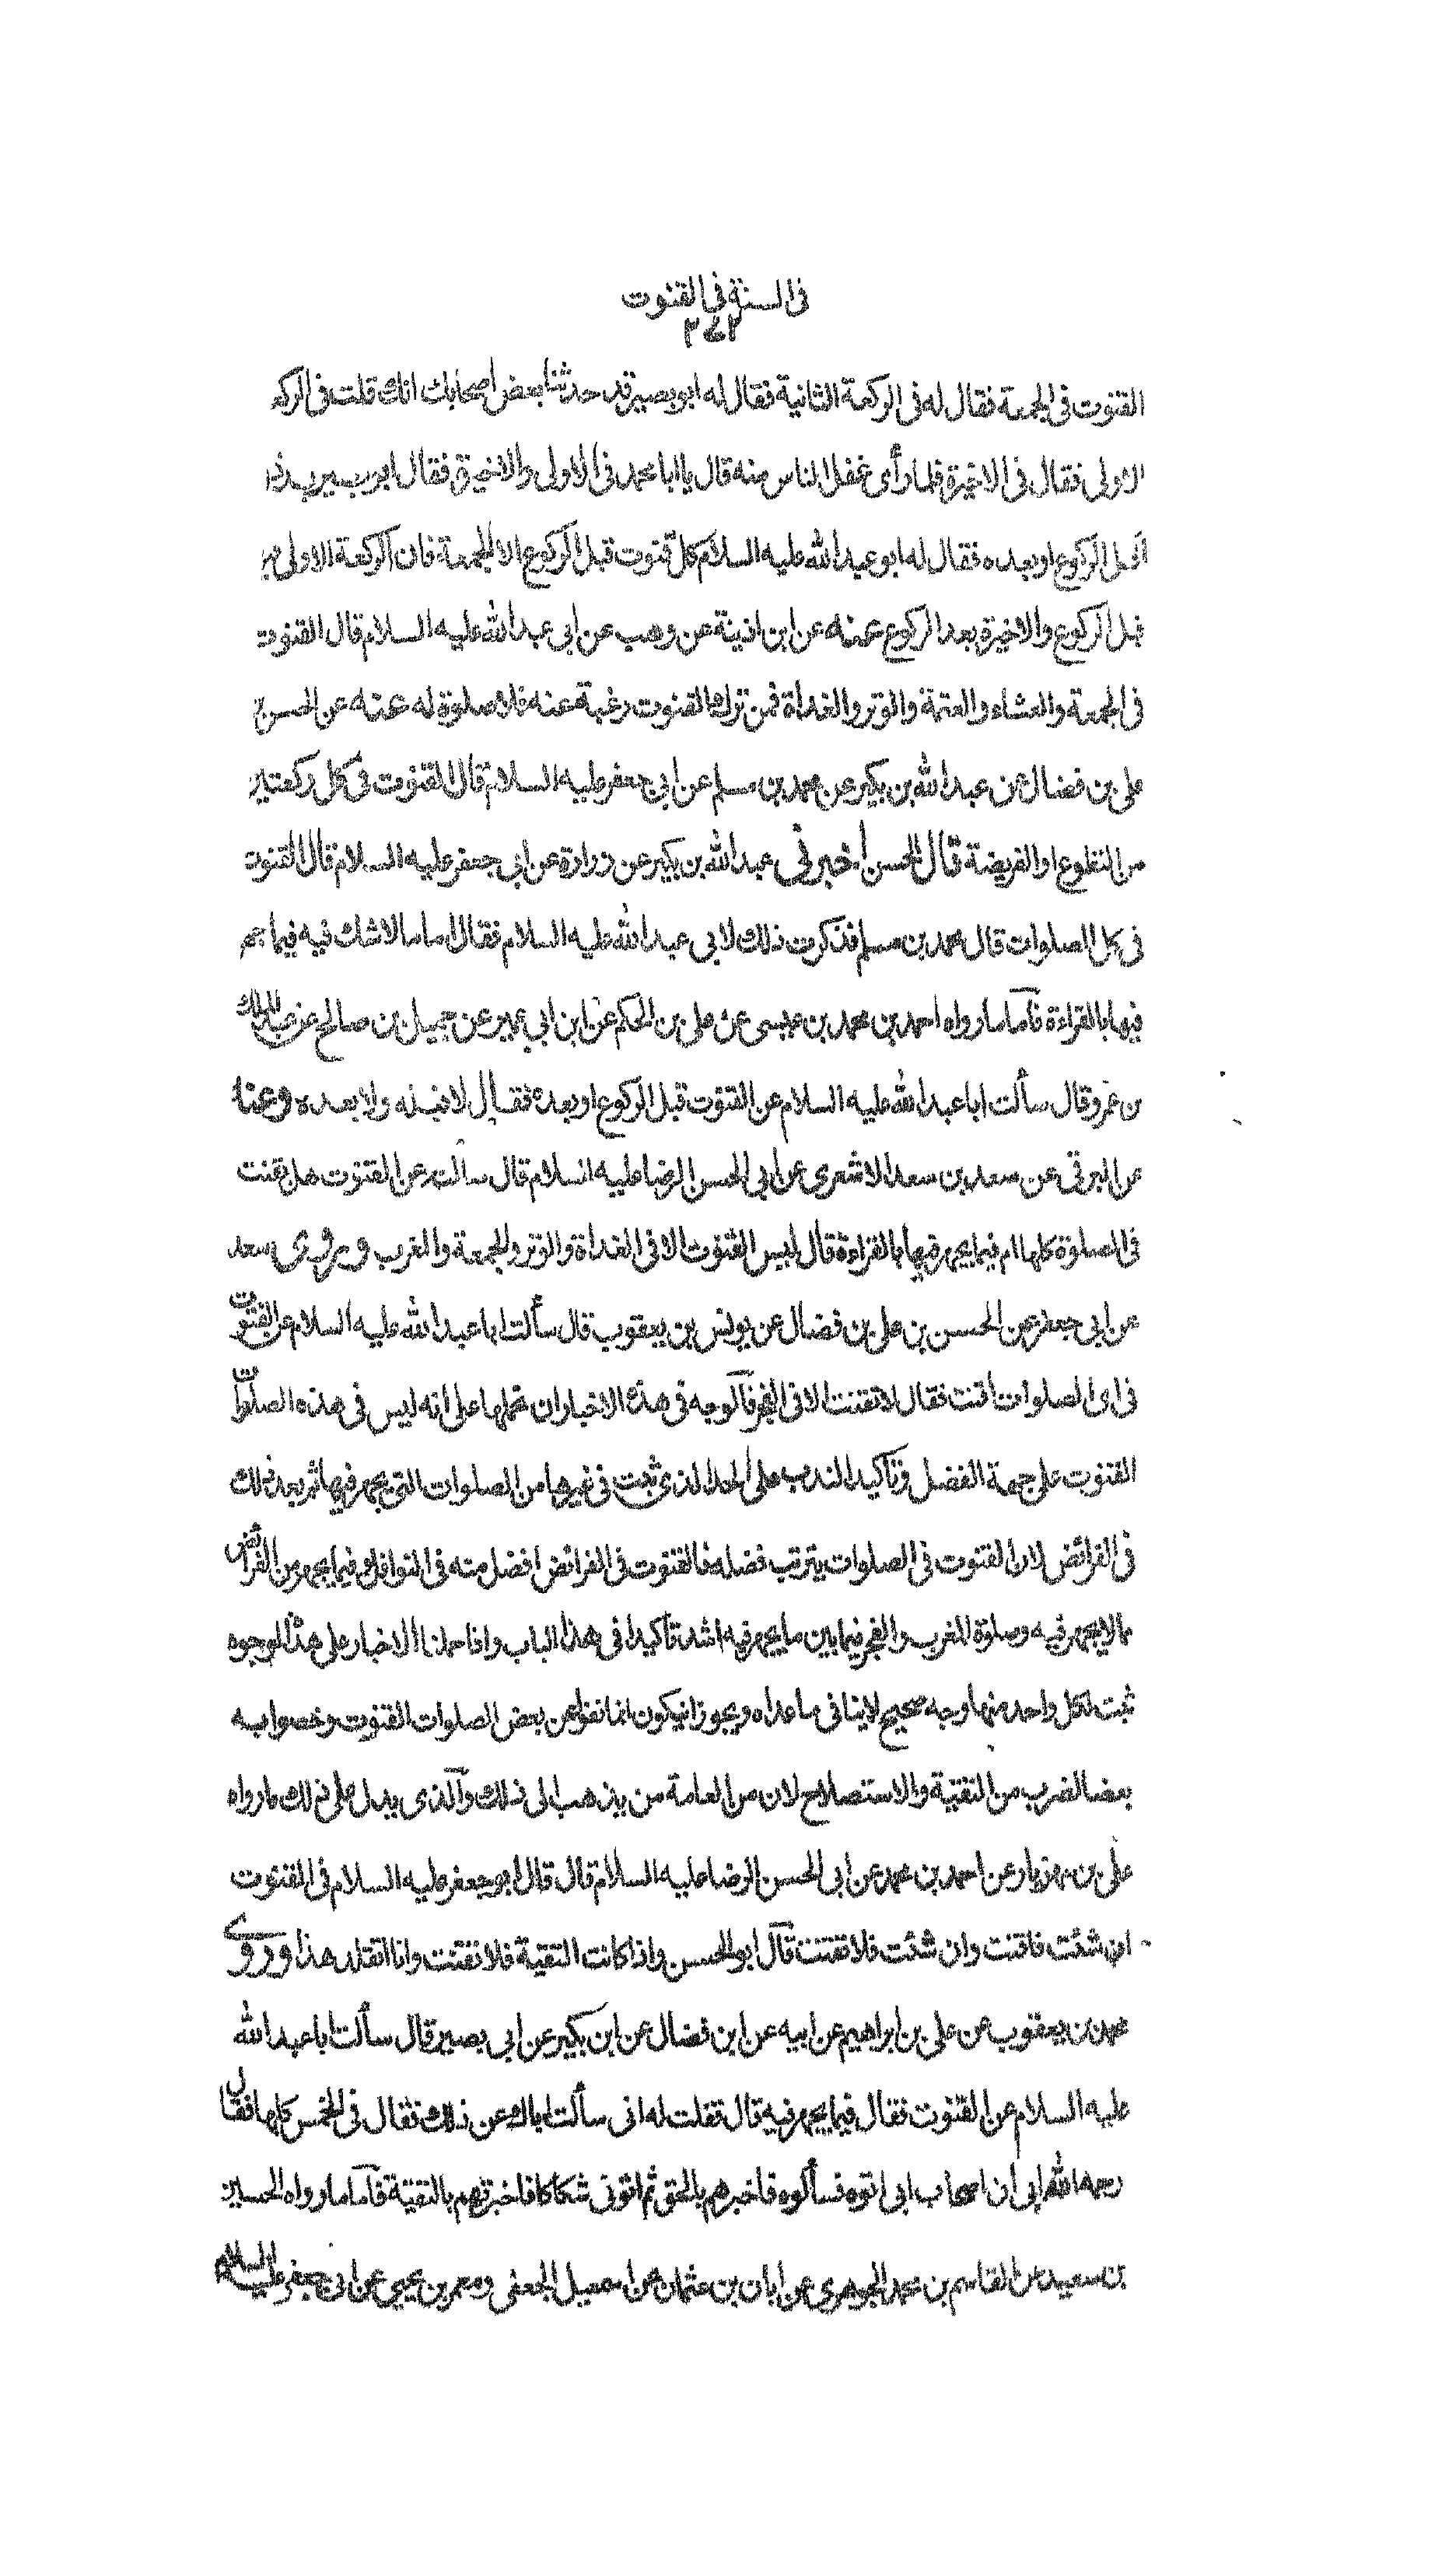 فى السنة فى القنوت
٢٤٢
القنوت فى الجمعة فقال له فى الركعة الثانية فقال له ابو بصير قد حدثنا بعض اصحابك انك قلت فى الركعة
الاولى فقال فى الاخيرة فلما رأى غفل الناس منه قال يا ابا محمد فى الاولى والاخيرة فقال ابو بصير بعد ذلك
أقبل الركوع او بعده فقال له ابو عبد الله عليه السلام كل قنوت قبل الركوع الا الجمعة فان الركعة الاولى
قبل الركوع والاخيرة بعد الركوع عنه عن ابن اذينة عن وهب عن ابى عبد الله عليه السلام قال القنوت
فى الجمعة والعشاء والعتمة والوتر والغداة فمن ترك القنوت رغبة عنه فلا صلوة له عنه عن الحسن بن
على بن فضال عن عبد الله بن بكير عن محمد بن مسلم عن ابى جعفر عليه السلام قال القنوت فى كل ركعتين
من التطوع او الفريضة قال الحسن اخبرنى عبد الله بن بكير عن زرارة عن ابى جعفر عليه السلام قال القنوت
فى كل الصلوات قال محمد بن مسلم فذكرت ذلك لابى عبد الله عليه السلام فقال اما ما لا شك فيه فيما جهر
فيها بالقراءة فأما ما رواه احمد بن محمد بن عيسى عن على بن الحكم عن ابن ابى عمير عن جميل بن صالح عن عبد الملك
بن عمرو قال سألت ابا عبد الله عليه السلام عن القنوت قبل الركوع او بعده فقال لا قبله ولا بعده وعنه
عن البرقى عن سعد بن سعد الاشعرى عن ابى الحسن الرضا عليه السلام قال سألته عن القنوت هل يقنت
فى الصلوة كلها ام فيما يجهر فيها بالقراءة قال ليس القنوت الا فى الغداة والوتر والجمعة والمغرب وروى سعد
عن ابى جعفر عن الحسن بن على بن فضال عن يونس بن يعقوب قال سألت ابا عبد الله عليه السلام عن القنوت
فى اى الصلوات اقنت فقال لا تقنت الا فى الفجر فالوجه فى هذه الاخبار ان نحملها على انه ليس فى هذه الصلوات
القنوت على جهة الفضل وتأكيد الندب على الحد الذى ثبت فى غيرها من الصلوات التى يجهر فيها ثم بعد ذلك
فى الفرائض لان القنوت فى الصلوات يترتب فضله فالقنوت فى الفرائض افضل منه فى النوافل وفيما يجهر من الفرائض
مما لا يجهر فيه وصلوة المغرب والفجر فيما بين ما يجهر فيه اشد تأكيدا فى هذا الباب واذا حملنا الاخبار على هذا الوجوه
ثبت لكل واحد منها وجه صحيح لا ينافى ما عداه ويجوز ان يكون انما نفوا عن بعض الصلوات القنوت وخصوا به
بعضا لضرب من التقية والاستصلاح لان من العامة من يذهب الى ذلك والذى يدل على ذلك ما رواه
على بن مهزيار عن احمد بن محمد عن ابى الحسن الرضا عليه السلام قال قال ابو جعفر عليه السلام فى القنوت
ان شئت فاقنت وان شئت فلا تقنت قال ابو الحسن واذا كانت التقية فلا تقنت وانا اتقلد هذا وروى
محمد بن يعقوب عن على بن ابراهيم عن ابيه عن ابن فضال عن ابن بكير عن ابى بصير قال سألت ابا عبد الله
عليه السلام عن القنوت فقال فيما يجهر فيه قال فقلت له انى سألت اباك عن ذلك فقال فى الخمس كلها فقال
رحم الله ابى ان اصحاب ابى اتوه فسألوه فاخبرهم بالحق ثم اتونى شكاكا فاخبرتهم بالتقية فأما ما رواه الحسين
بن سعيد عن القاسم بن محمد الجوهرى عن ابان بن عثمان عن اسمعيل الجعفى ومعمر بن يحيى عن ابى جعفر عليه السلام